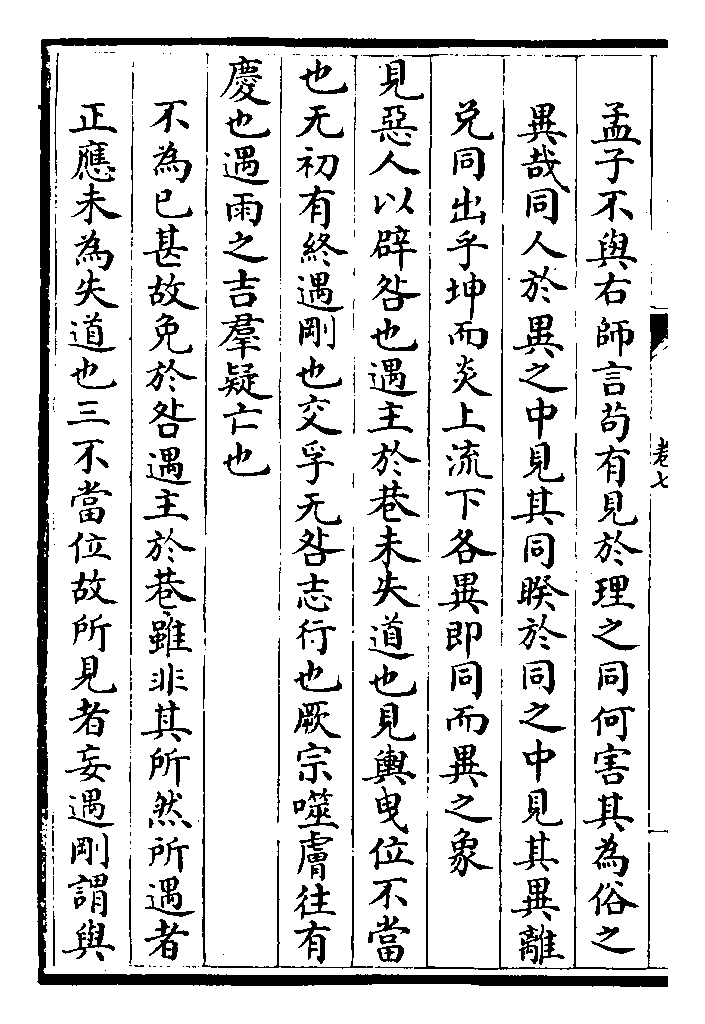 孟子不與右師言茍有見於理之同何害其為俗之
異哉同人於異之中見其同睽於同之中見其異離
兌同出乎坤而炎上流下各異即同而異之象
見惡人以辟咎也遇主於巷未失道也見輿曳位不當
也无初有終遇剛也交孚无咎志行也厥宗噬膚往有
慶也遇雨之吉羣疑亡也
不為已甚故免於咎遇主於巷雖非其所然所遇者
正應未為失道也三不當位故所見者妄遇剛謂與
卷七